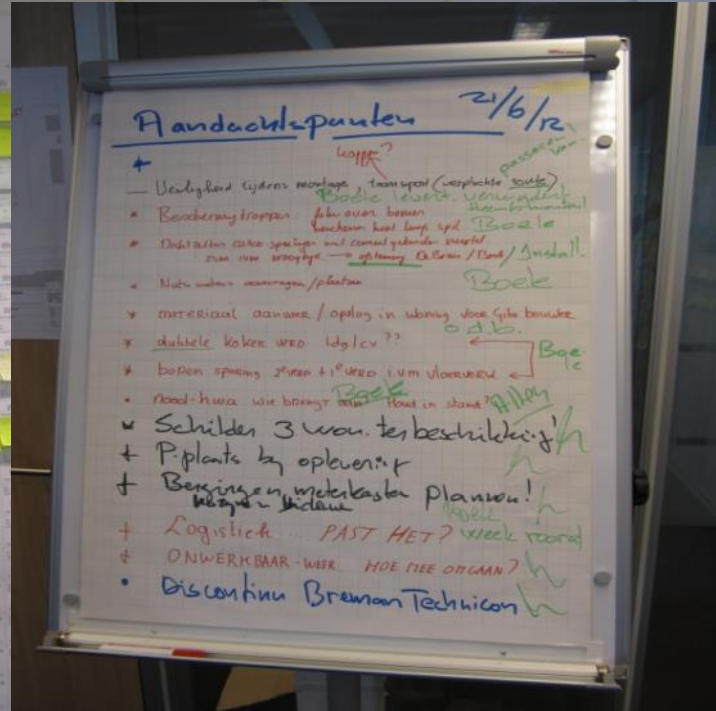 Aandachtspunten 21/6/12
kapps?
passeren van
Veiligheid tijdens montage, transport (verplichte route)
Boele levert.
Beschermtrappen folie over bomen
bescherm hout langs spil Boele
Dichtzetten casco sparingen met cementgebonden mortel
→ opleveren De Bruin / Boele / Install.
Nuts aanvragen / plaatsen Boele
materiaal aanvoer / opslag in woning voor Giba bouwer
o.d.b.
dubbele koker VERD. ldg/cv??
Boele
boren sparing 2e VERD + 1e VERD i.v.m. vloerverw
Boele
nood-hwa wie brengt aan Houdt in stand? Allen
Schilder 3 won. ter beschikking!
P-plaats bij oplevering
Bergingen meterkasten plannen!
Logistiek... PAST HET? week rooster
ONWERKBAAR-WEER. HOE MEE OMGAAN?
Discontinu Breman Technicon